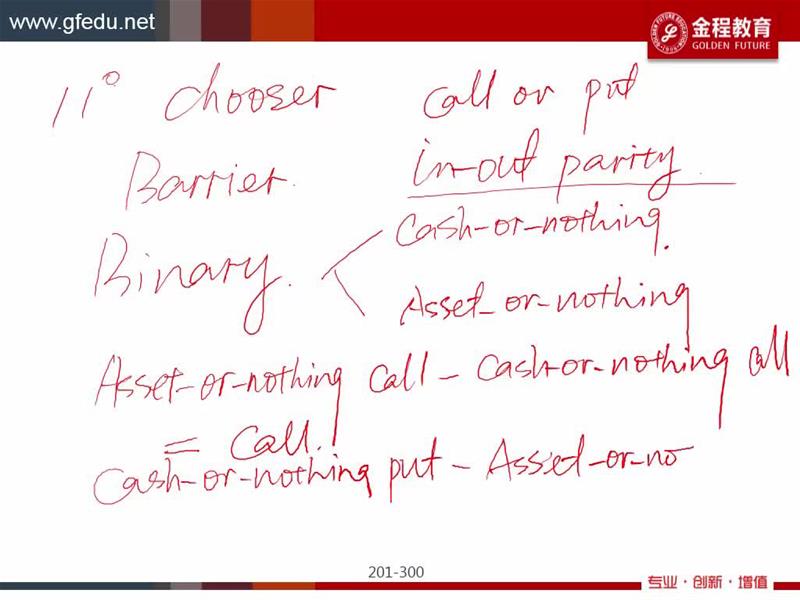 www.gfedu.net
金程教育
GOLDEN FUTURE
11° Chooser Call or put
Barrier. in-out parity.
Binary. Cash-or-nothing.
Asset-or-nothing
Asset-or-nothing Call - Cash-or-nothing Call
= Call.
Cash-or-nothing put - Asset-or-no
201-300
专业·创新·增值